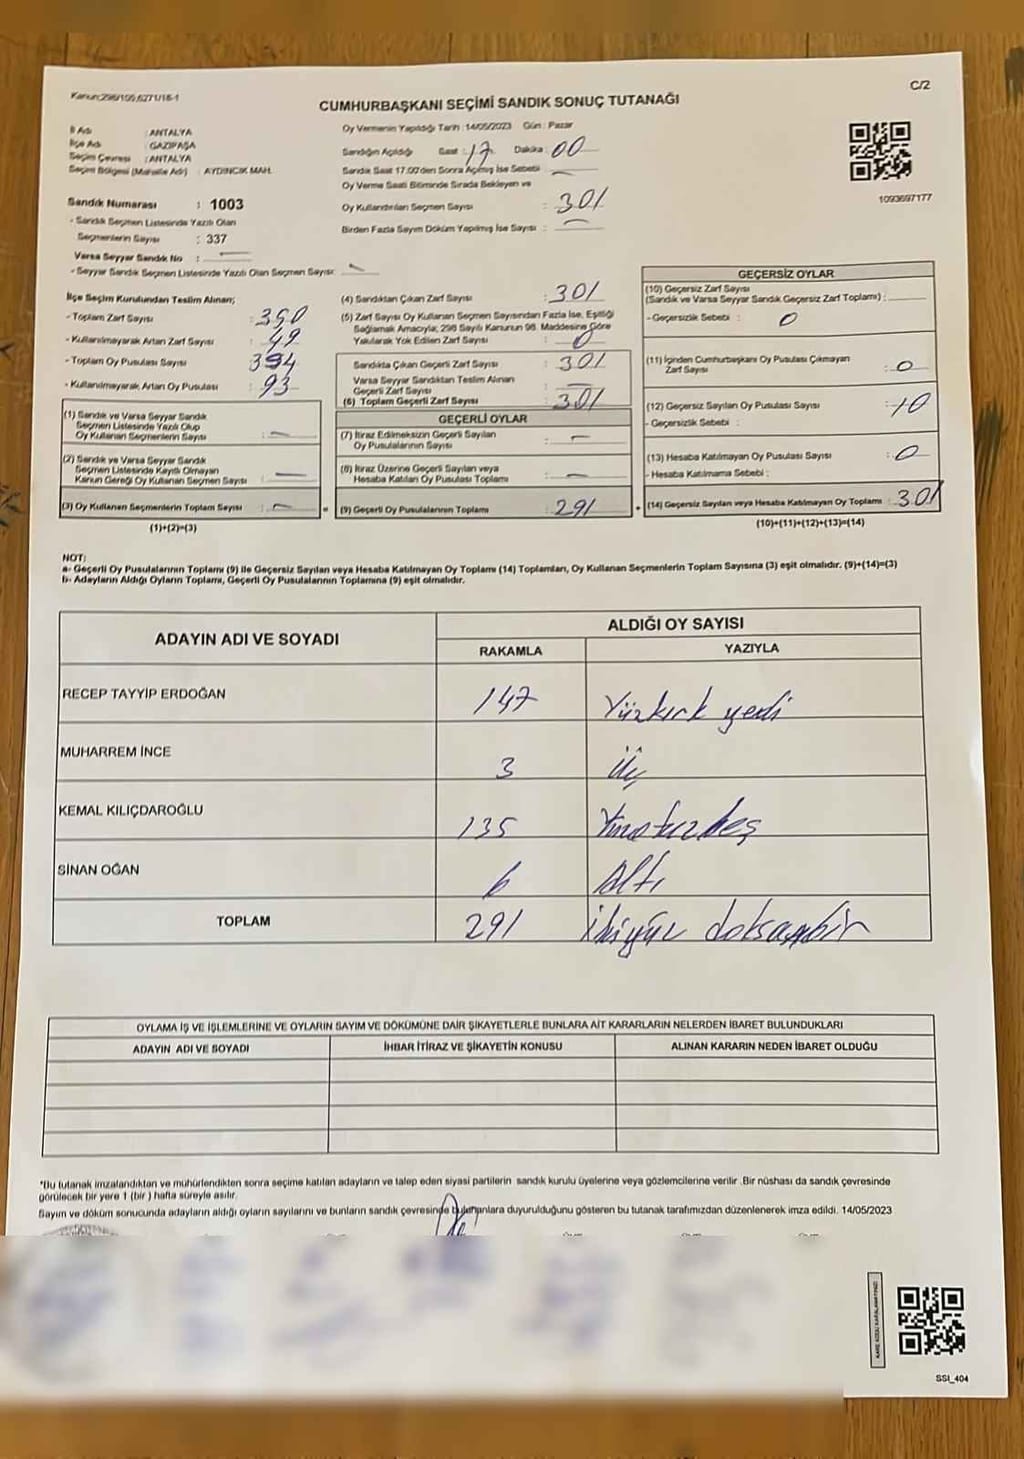 Kanun:298/105,6271/18-1
C/2
CUMHURBAŞKANI SEÇİMİ SANDIK SONUÇ TUTANAĞI
İl Adı : ANTALYA
İlçe Adı : GAZİPAŞA
Seçim Çevresi : ANTALYA
Seçim Bölgesi (Mahalle Adı) : AYDINCIK MAH.
Sandık Numarası : 1003
- Sandık Seçmen Listesinde Yazılı Olan
Seçmenlerin Sayısı : 337
Varsa Seyyar Sandık No : —
- Seyyar Sandık Seçmen Listesinde Yazılı Olan Seçmen Sayısı: —
Oy Vermenin Yapıldığı Tarih :14/05/2023 Gün : Pazar
Sandığın Açıldığı Saat : 17 Dakika : 00
Sandık Saat 17:00'den Sonra Açılmış İse Sebebi —
Oy Verme Saati Bitiminde Sırada Bekleyen ve
Oy Kullandırılan Seçmen Sayısı : 301
Birden Fazla Sayım Döküm Yapılmış İse Sayısı : —
1093697177
İlçe Seçim Kurulundan Teslim Alınan;
- Toplam Zarf Sayısı : 350
- Kullanılmayarak Artan Zarf Sayısı : 49
- Toplam Oy Pusulası Sayısı : 394
- Kullanılmayarak Artan Oy Pusulası : 93
(1) Sandık ve Varsa Seyyar Sandık
Seçmen Listesinde Yazılı Olup
Oy Kullanan Seçmenlerin Sayısı : —
(2) Sandık ve Varsa Seyyar Sandık
Seçmen Listesinde Kayıtlı Olmayan
Kanun Gereği Oy Kullanan Seçmen Sayısı : —
(3) Oy Kullanan Seçmenlerin Toplam Sayısı : —
(1)+(2)=(3)
(4) Sandıktan Çıkan Zarf Sayısı : 301
(5) Zarf Sayısı Oy Kullanan Seçmen Sayısından Fazla İse, Eşitliği
Sağlamak Amacıyla; 298 Sayılı Kanunun 98. Maddesine Göre
Yakılarak Yok Edilen Zarf Sayısı : 0
Sandıkta Çıkan Geçerli Zarf Sayısı : 301
Varsa Seyyar Sandıktan Teslim Alınan
Geçerli Zarf Sayısı : —
(6) Toplam Geçerli Zarf Sayısı : 301
GEÇERLİ OYLAR
(7) İtiraz Edilmeksizin Geçerli Sayılan
Oy Pusulalarının Sayısı : —
(8) İtiraz Üzerine Geçerli Sayılan veya
Hesaba Katılan Oy Pusulası Toplamı : —
= (9) Geçerli Oy Pusulalarının Toplamı : 291
GEÇERSİZ OYLAR
(10) Geçersiz Zarf Sayısı
(Sandık ve Varsa Seyyar Sandık Geçersiz Zarf Toplamı) :
- Geçersizlik Sebebi : 0
(11) İçinden Cumhurbaşkanı Oy Pusulası Çıkmayan
Zarf Sayısı : 0
(12) Geçersiz Sayılan Oy Pusulası Sayısı : 10
- Geçersizlik Sebebi :
(13) Hesaba Katılmayan Oy Pusulası Sayısı : 0
- Hesaba Katılmama Sebebi :
+ (14) Geçersiz Sayılan veya Hesaba Katılmayan Oy Toplamı : 301
(10)+(11)+(12)+(13)=(14)
NOT:
a- Geçerli Oy Pusulalarının Toplamı (9) ile Geçersiz Sayılan veya Hesaba Katılmayan Oy Toplamı (14) Toplamları, Oy Kullanan Seçmenlerin Toplam Sayısına (3) eşit olmalıdır. (9)+(14)=(3)
b- Adayların Aldığı Oyların Toplamı, Geçerli Oy Pusulalarının Toplamına (9) eşit olmalıdır.
ADAYIN ADI VE SOYADI
ALDIĞI OY SAYISI
RAKAMLA YAZIYLA
RECEP TAYYİP ERDOĞAN 147 Yüzkırk yedi
MUHARREM İNCE 3 Üç
KEMAL KILIÇDAROĞLU 135 Yüzotuzbeş
SİNAN OĞAN 6 Altı
TOPLAM 291 İkiyüz doksanbir
OYLAMA İŞ VE İŞLEMLERİNE VE OYLARIN SAYIM VE DÖKÜMÜNE DAİR ŞİKAYETLERLE BUNLARA AİT KARARLARIN NELERDEN İBARET BULUNDUKLARI
ADAYIN ADI VE SOYADI İHBAR İTİRAZ VE ŞİKAYETİN KONUSU ALINAN KARARIN NEDEN İBARET OLDUĞU
*Bu tutanak imzalandıktan ve mühürlendikten sonra seçime katılan adayların ve talep eden siyasi partilerin sandık kurulu üyelerine veya gözlemcilerine verilir .Bir nüshası da sandık çevresinde
görülecek bir yere 1 (bir ) hafta süreyle asılır.
Sayım ve döküm sonucunda adayların aldığı oyların sayılarını ve bunların sandık çevresinde bulunanlara duyurulduğunu gösteren bu tutanak tarafımızdan düzenlenerek imza edildi. 14/05/2023
SSI_404